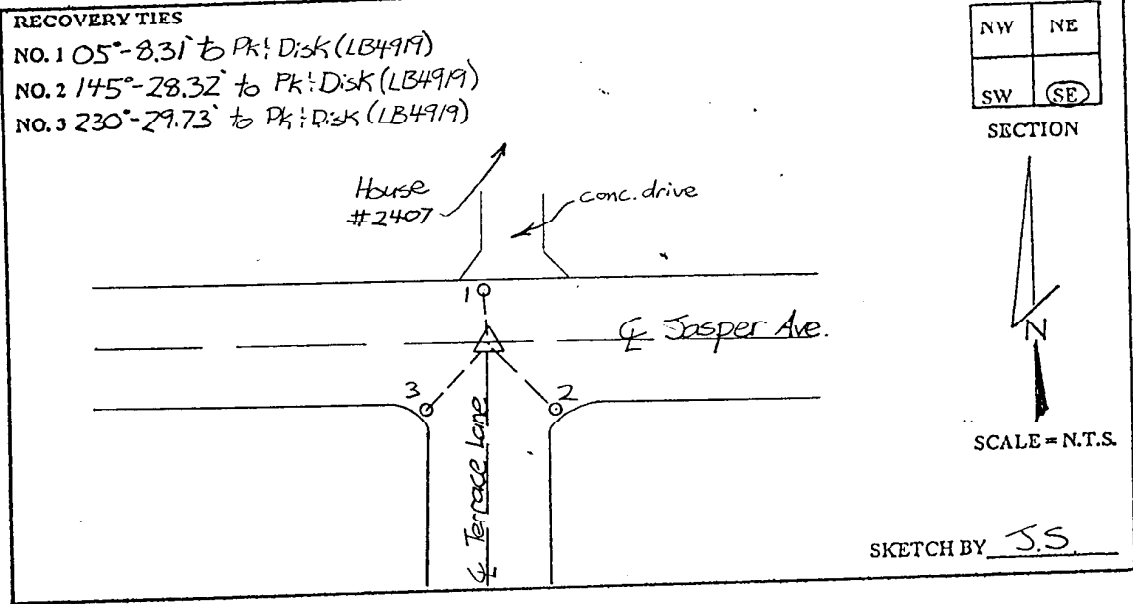 RECOVERY TIES
NO. 1 05°-8.31' to Pk & Disk (LB4919)
NO. 2 145°-28.32' to Pk & Disk (LB4919)
NO. 3 230°-29.73' to Pk & Disk (LB4919)
NW NE
SW SE
SECTION
House
#2407
conc. drive
1
℄ Jasper Ave.
3
2
℄ Terrace Lane
N
SCALE = N.T.S.
SKETCH BY J.S.